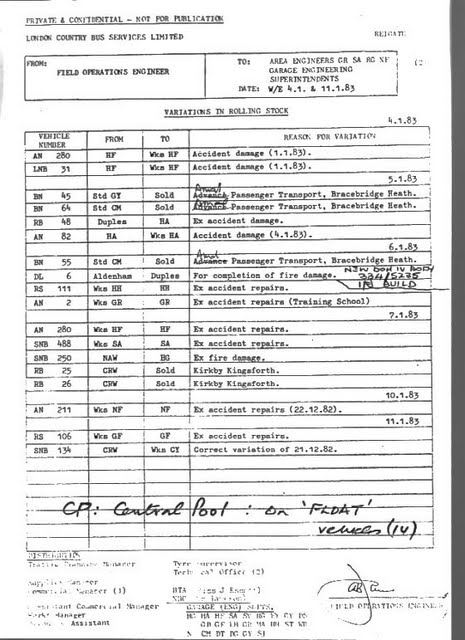 PRIVATE & CONFIDENTIAL - NOT FOR PUBLICATION
LONDON COUNTRY BUS SERVICES LIMITED
REIGATE
FROM:
FIELD OPERATIONS ENGINEER
TO: AREA ENGINEERS GR SA RG NF
GARAGE ENGINEERING
SUPERINTENDENTS
DATE: W/E 4.1. & 11.1.83
(2
VARIATIONS IN ROLLING STOCK
4.1.83
VEHICLE NUMBER FROM TO REASON FOR VARIATION
AN 280 HF Wks HF Accident damage (1.1.83).
LNB 31 HF Wks HF Accident damage (1.1.83).
5.1.83
BN 45 Std GY Sold Advance Passenger Transport, Bracebridge Heath.
BN 64 Std CM Sold Passenger Transport, Bracebridge Heath.
RB 48 Duples HA Ex accident damage.
AN 82 HA Wks HA Accident damage (4.1.83).
6.1.83
BN 55 Std CM Sold Advance Passenger Transport, Bracebridge Heath.
DL 6 Aldenham Duples For completion of fire damage. NEW DOM IV BODY
334/5275
IN BUILD
RS 111 Wks HH HH Ex accident repairs.
AN 2 Wks GR GR Ex accident repairs (Training School)
7.1.83
AN 280 Wks HF HF Ex accident repairs.
SNB 488 Wks SA SA Ex accident repairs.
SNB 250 NAW HG Ex fire damage.
RB 25 CRW Sold Kirkby Kingsforth.
RB 26 CRW Sold Kirkby Kingsforth.
10.1.83
AN 211 Wks NF NF Ex accident repairs (22.12.82).
11.1.83
RS 106 Wks GF GF Ex accident repairs.
SNB 134 CRW Wks CY Correct variation of 21.12.82.
CP: Central Pool: on 'FLOAT'
vehicles (14)
DISTRIBUTION
Traffic Manager
Tyre Supervisor
Technical Office (2)
Supplies Manager
Commercial Manager (1)
Assistant Commercial Manager
Works Manager
Assistant
GARAGE (ENG) SUPTS.
FIELD OPERATIONS ENGINEER
N CM DT DG GY SJ